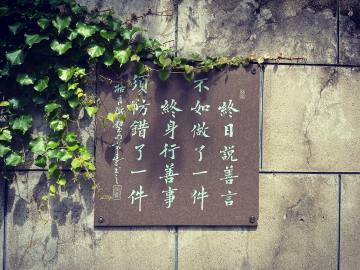 終日說善言
不如做了一件
終身行善事
須防錯了一件